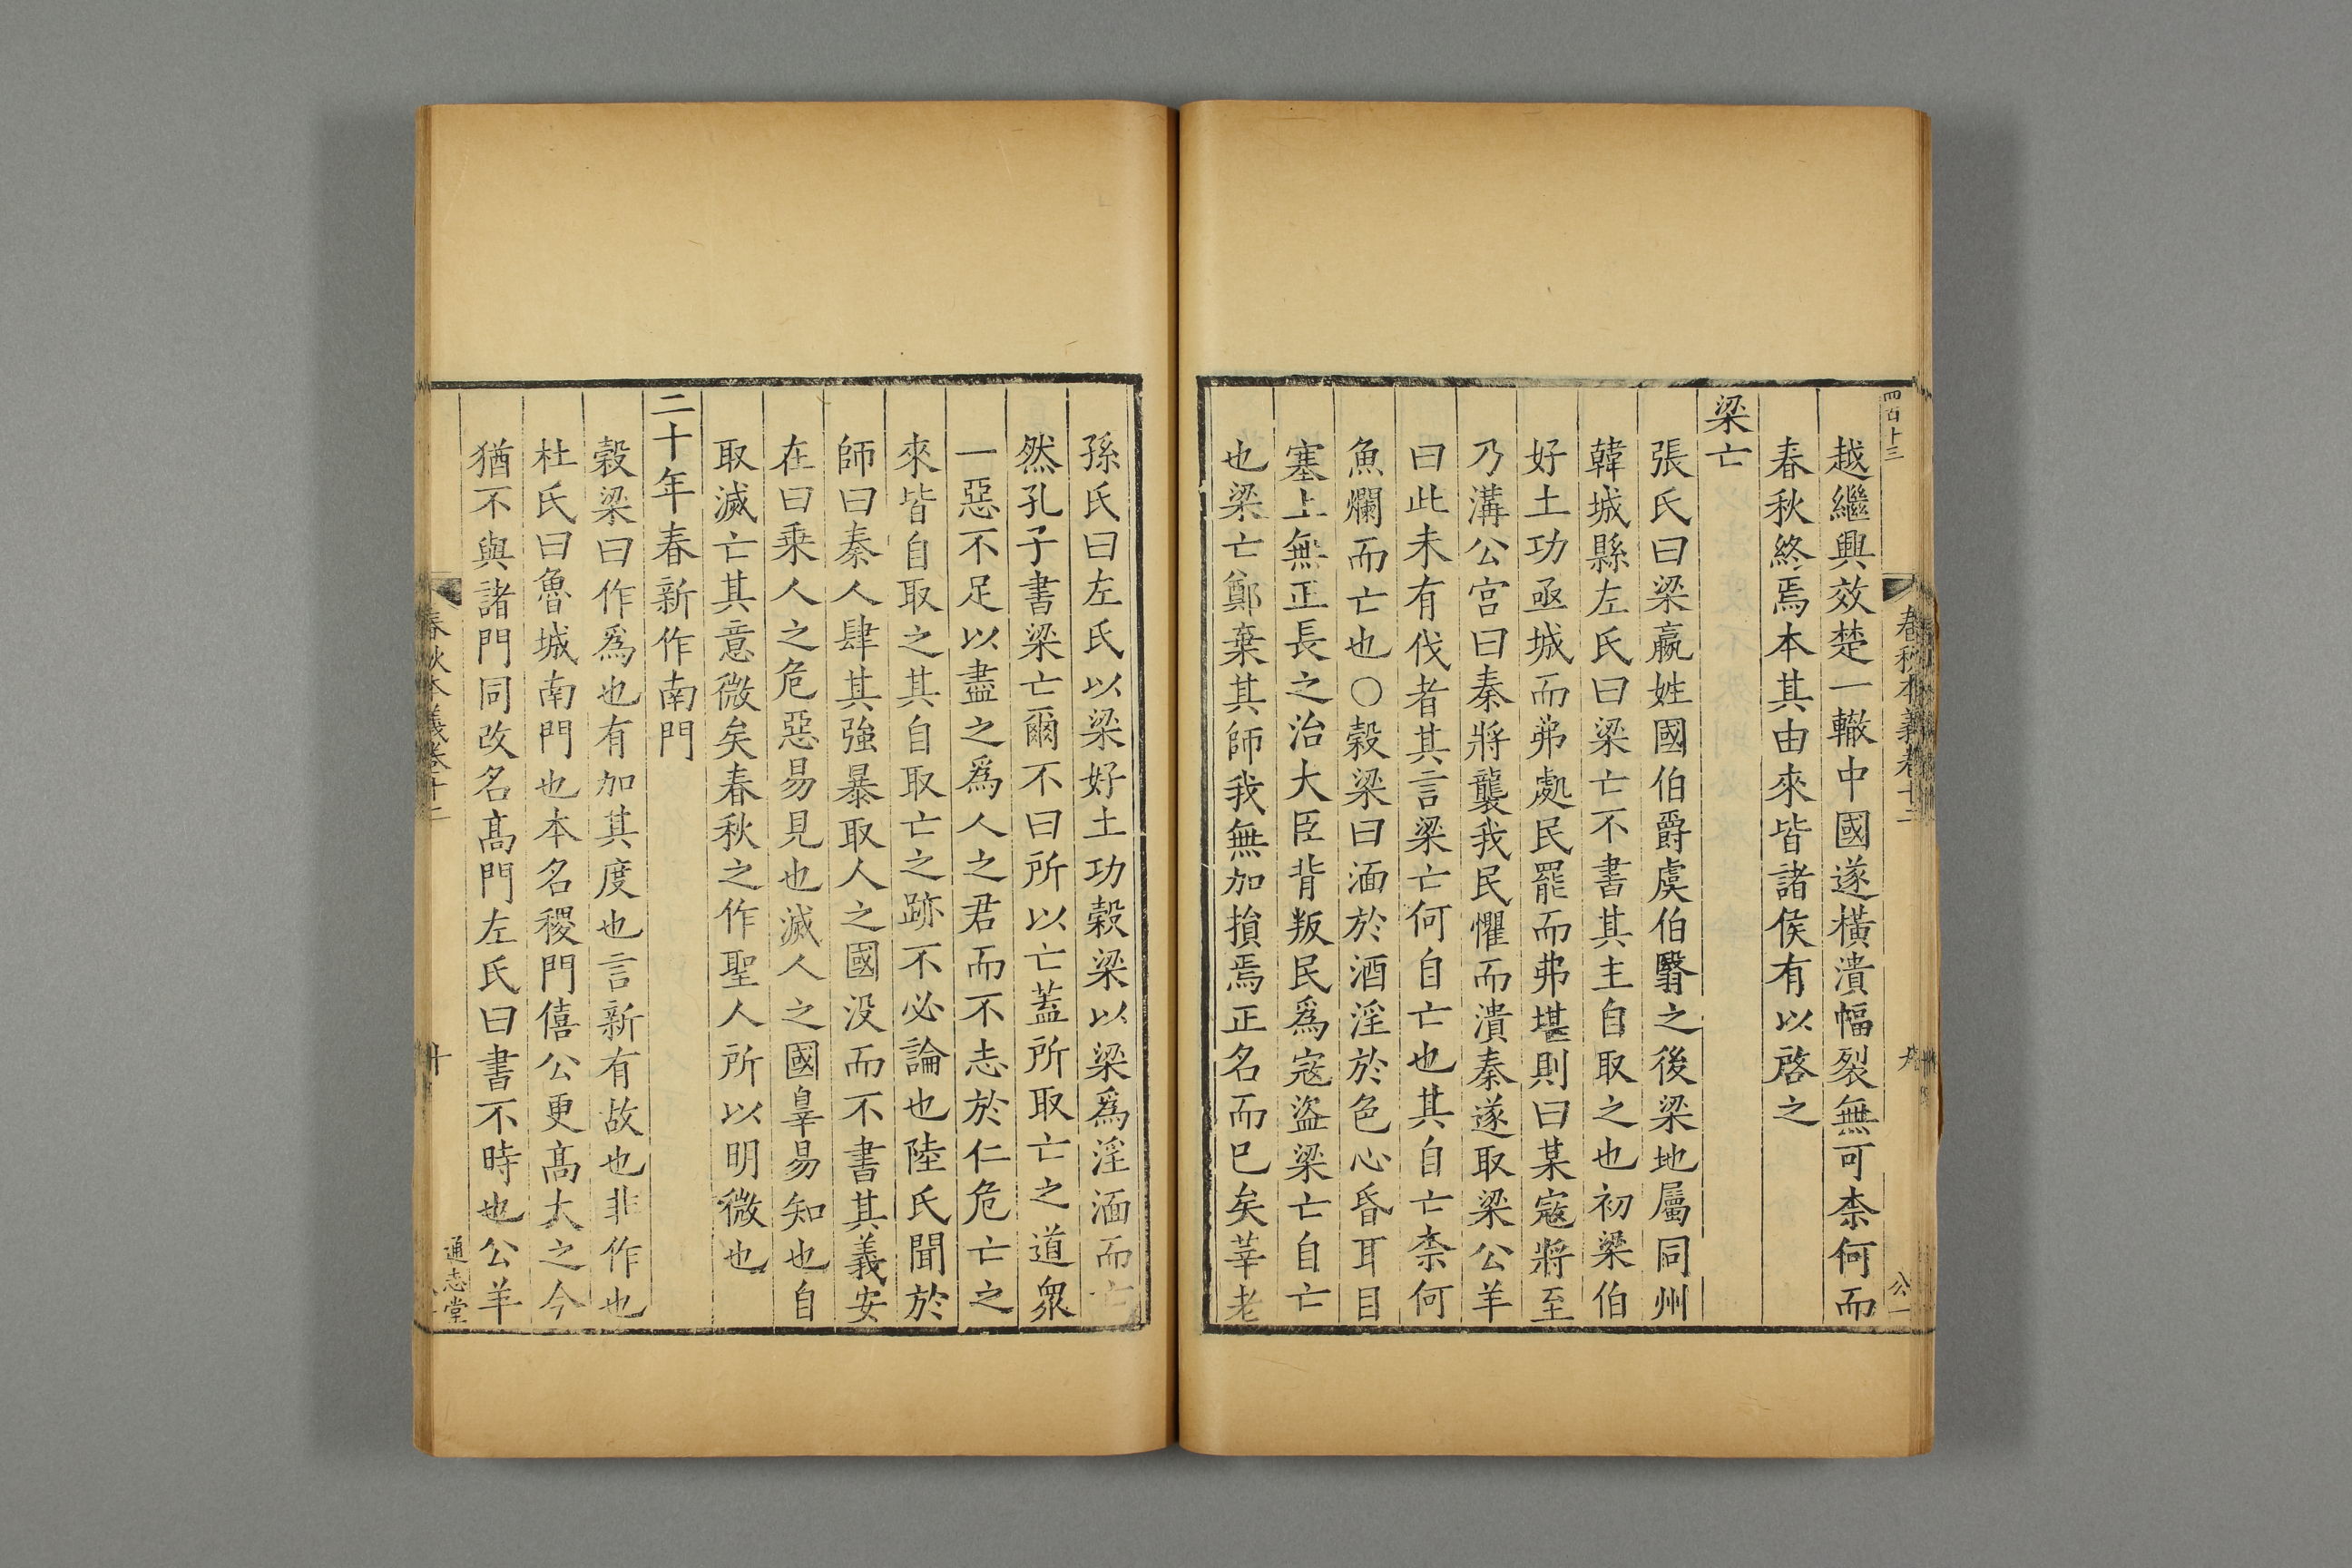 四百十三
春秋本義卷十二
九
公一
越繼興效楚一轍中國遂橫潰幅裂無可柰何而
春秋終焉本其由來皆諸侯有以啓之
梁亡
張氏曰梁嬴姓國伯爵虞伯翳之後梁地屬同州
韓城縣左氏曰梁亡不書其主自取之也初梁伯
好土功亟城而弗處民罷而弗堪則曰某寇將至
乃溝公宮曰秦將襲我民懼而潰秦遂取梁公羊
曰此未有伐者其言梁亡何自亡也其自亡柰何
魚爛而亡也○穀梁曰湎於酒淫於色心昏耳目
塞上無正長之治大臣背叛民爲寇盜梁亡自亡
也梁亡鄭棄其師我無加損焉正名而已矣莘老
孫氏曰左氏以梁好土功穀梁以梁爲淫湎而亡
然孔子書梁亡爾不曰所以亡蓋所取亡之道衆
一惡不足以盡之爲人之君而不志於仁危亡之
來皆自取之其自取亡之跡不必論也陸氏聞於
師曰秦人肆其強暴取人之國没而不書其義安
在曰乗人之危惡易見也滅人之國辠易知也自
取滅亡其意微矣春秋之作聖人所以明微也
二十年春新作南門
穀梁曰作爲也有加其度也言新有故也非作也
杜氏曰魯城南門也本名稷門僖公更髙大之今
猶不與諸門同改名髙門左氏曰書不時也公羊
春秋本義卷十二
十
通志堂